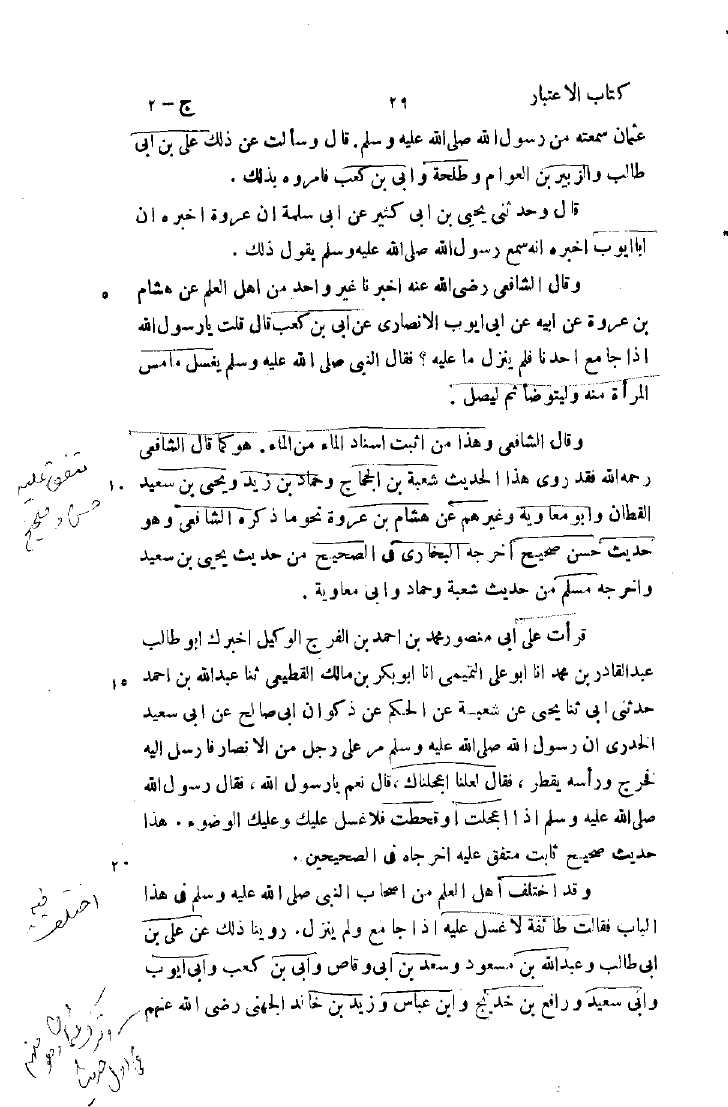 كتاب الاعتبار ٢٩ ج - ٢
عثمان سمعته من رسول الله صلى الله عليه وسلم. قال وسألت عن ذلك على بن ابى
طالب والزبير بن العوام وطلحة وابى بن كعب فامروه بذلك .
قال وحدثنى يحيى بن ابى كثير عن ابى سلمة ان عروة اخبره ان
ابا ايوب اخبره انه سمع رسول الله صلى الله عليه وسلم يقول ذلك .
وقال الشافعى رضى الله عنه اخبرنا غير واحد من اهل العلم عن هشام ٥
بن عروة عن ابيه عن ابى ايوب الانصارى عن ابى بن كعب قال قلت يا رسول الله
اذا جامع احدنا فلم ينزل ما عليه ؟ فقال النبى صلى الله عليه وسلم يغسل ما مس
المرأة منه وليتوضأ ثم ليصل .
وقال الشافعى وهذا من اثبت اسناد الماء من الماء. هو كما قال الشافعى
رحمه الله فقد روى هذا الحديث شعبة بن الحجاج وحماد بن زيد ويحيى بن سعيد ١٠
القطان وابو معاوية وغيرهم عن هشام بن عروة نحو ما ذكره الشافعى وهو
حديث حسن صحيح اخرجه البخارى فى الصحيح من حديث يحيى بن سعيد
واخرجه مسلم من حديث شعبة وحماد وابى معاوية .
قرأت على ابى منصور محمد بن احمد بن الفرج الوكيل اخبرك ابو طالب
عبدالقادر بن محمد انا ابو على التميمى انا ابوبكر بن مالك القطيعى ثنا عبدالله بن احمد ١٥
حدثنى ابى ثنا يحيى عن شعبة عن الحكم عن ذكوان ابى صالح عن ابى سعيد
الخدرى ان رسول الله صلى الله عليه وسلم مر على رجل من الانصار فارسل اليه
فخرج ورأسه يقطر ، فقال لعلنا اعجلناك ، قال نعم يا رسول الله ، فقال رسول الله
صلى الله عليه وسلم اذا اعجلت او قحطت فلا غسل عليك وعليك الوضوء . هذا
حديث صحيح ثابت متفق عليه اخرجاه فى الصحيحين . ٢٠
وقد اختلف أهل العلم من اصحاب النبى صلى الله عليه وسلم فى هذا
الباب فقالت طائفة لا غسل عليه اذا جامع ولم ينزل. روينا ذلك عن على بن
ابى طالب وعبدالله بن مسعود وسعد بن ابى وقاص وابى بن كعب وابى ايوب
وابى سعيد ورافع بن خديج وابن عباس وزيد بن خالد الجهنى رضى الله عنهم
متفق عليه
صحيح
اختلف
فيه